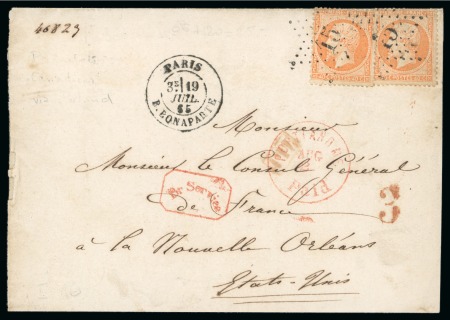 46823
15
15
PARIS
3E 19
JUIL.
65
R. BONAPARTE
Monsieur
Monsieur le Consul Général
de France
Br. Service
PAID
3
à la Nouvelle Orléans
Etats-Unis